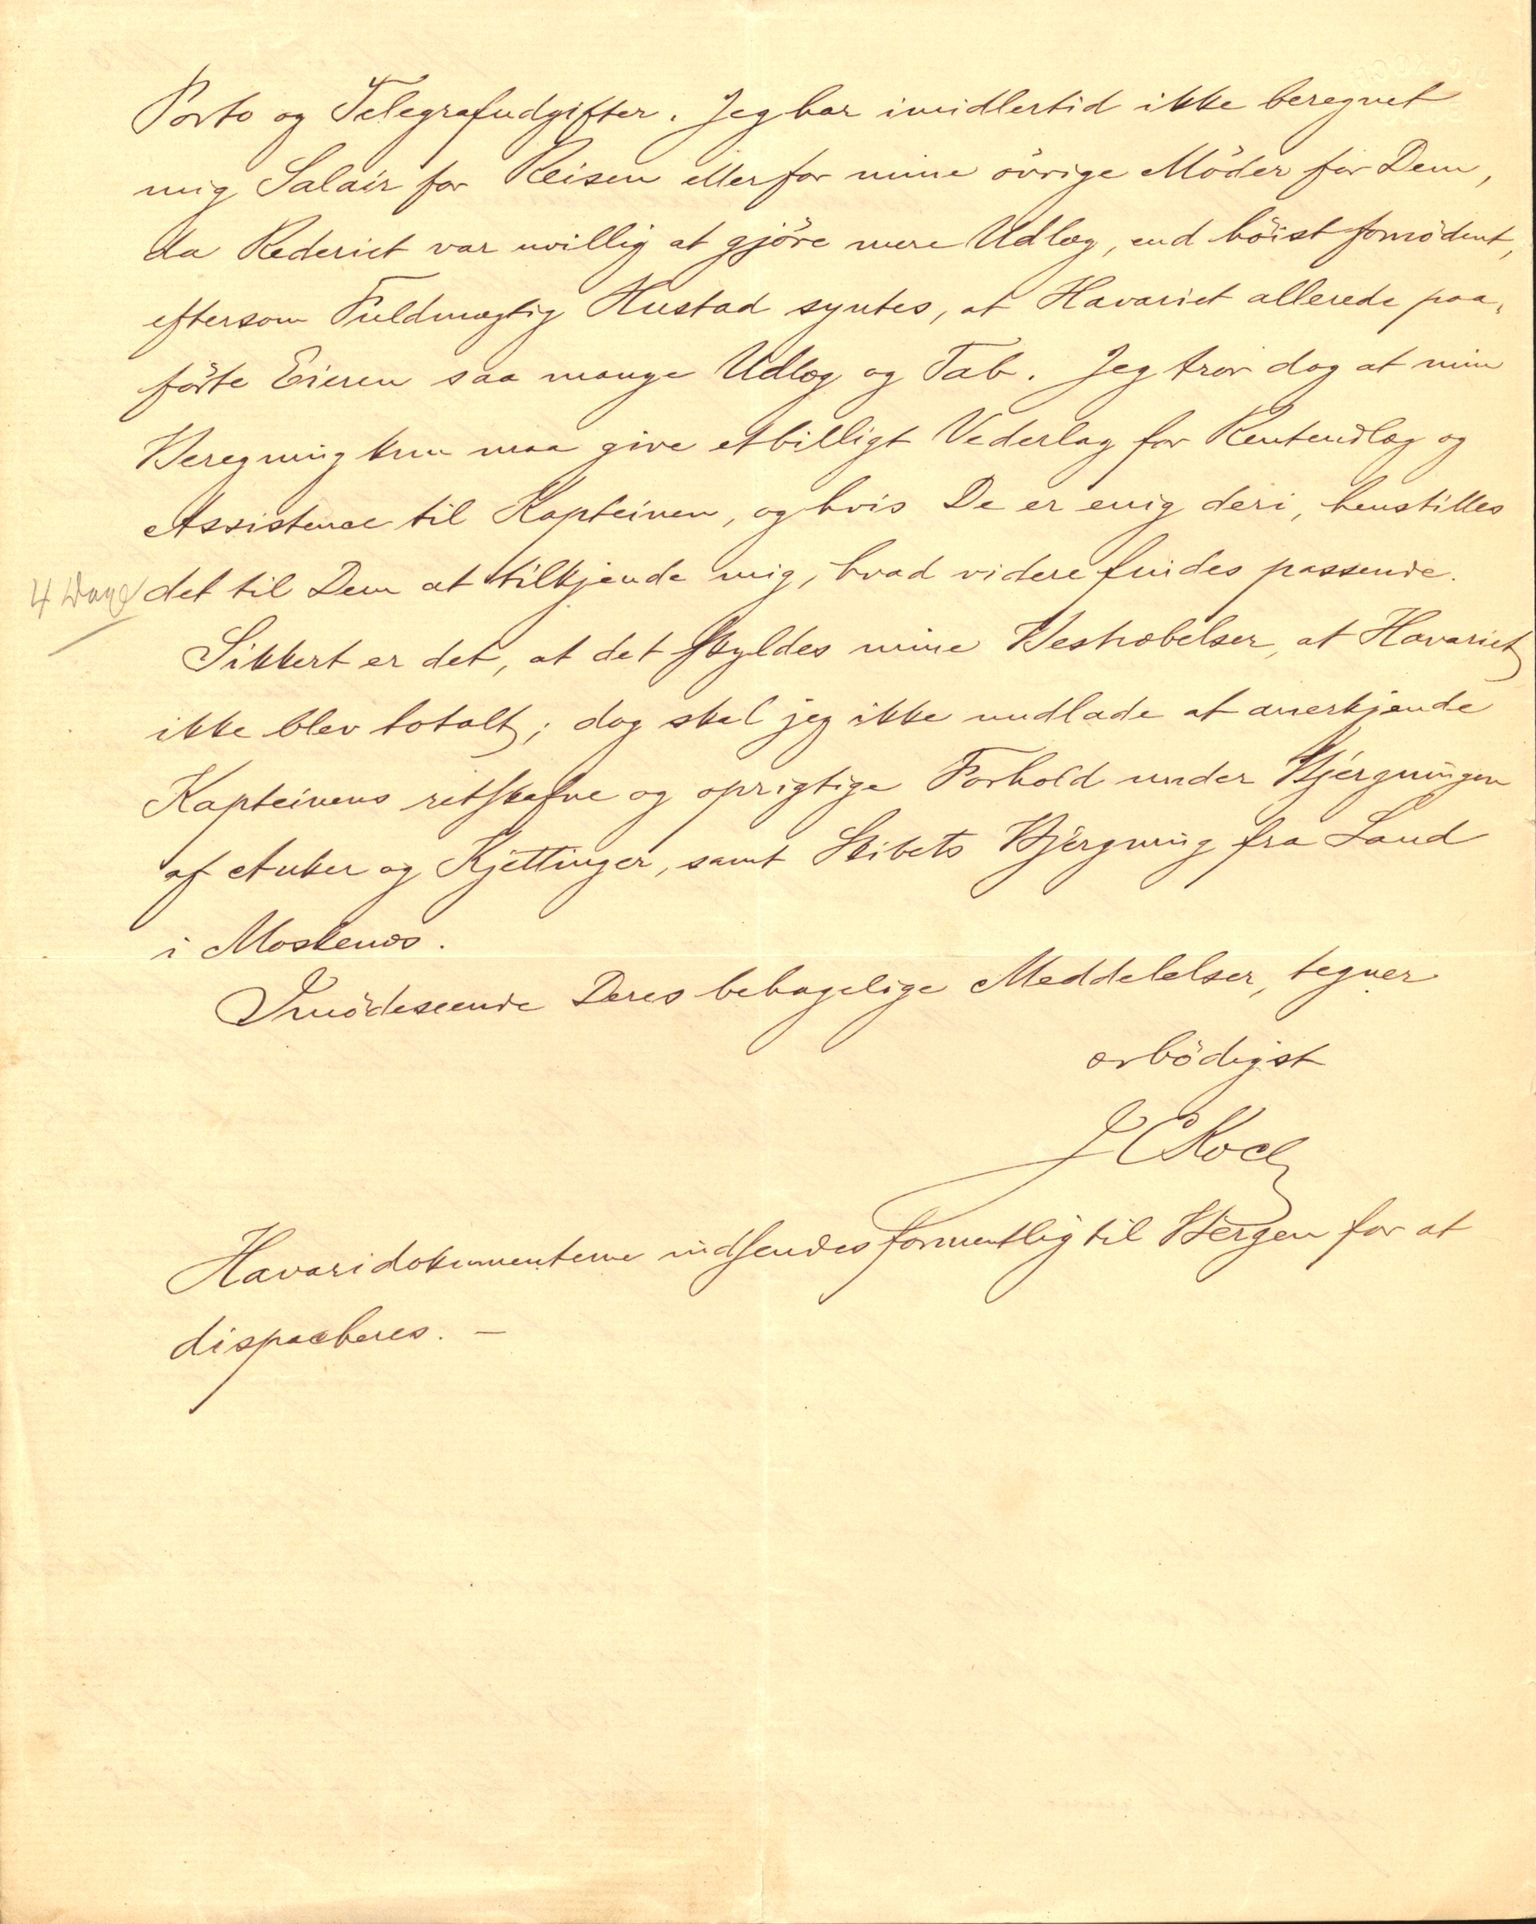 Porto og Telegrafudgifter. Jeg har imidlertid ikke beregnet
mig Salair for Reisen eller for mine övrige Möder for Dem,
da Rederiet var uvillig at gjöre mere Udlæg, end höist fornödent,
eftersom Fuldmægtig Hustad syntes, at Havariet allerede paa-
förte Eieren saa mange Udlæg og Tab. Jeg tror dog at min
Beregning kun maa give et billigt Vederlag for Renteudlæg og
Assistence til Kapteinen, og hvis De er enig deri, henstilles
4 Dage det til Dem at tilkjende mig, hvad videre findes passende.
Sikkert er det, at det skyldes mine Bestræbelser, at Havariet
ikke blev totalt; dog skal jeg ikke undlade at anerkjende
Kapteinens retskafne og oprigtige Forhold under Bjergningen
af Anker og Kjettinger, samt Skibets Bjergning fra Land
i Moskenæs.
Imödeseende Deres behagelige Meddelelser, tegner
ærbödigst
J C Koch
Havaridokumenterne indsendes formentlig til Bergen for at
dispacheres. —